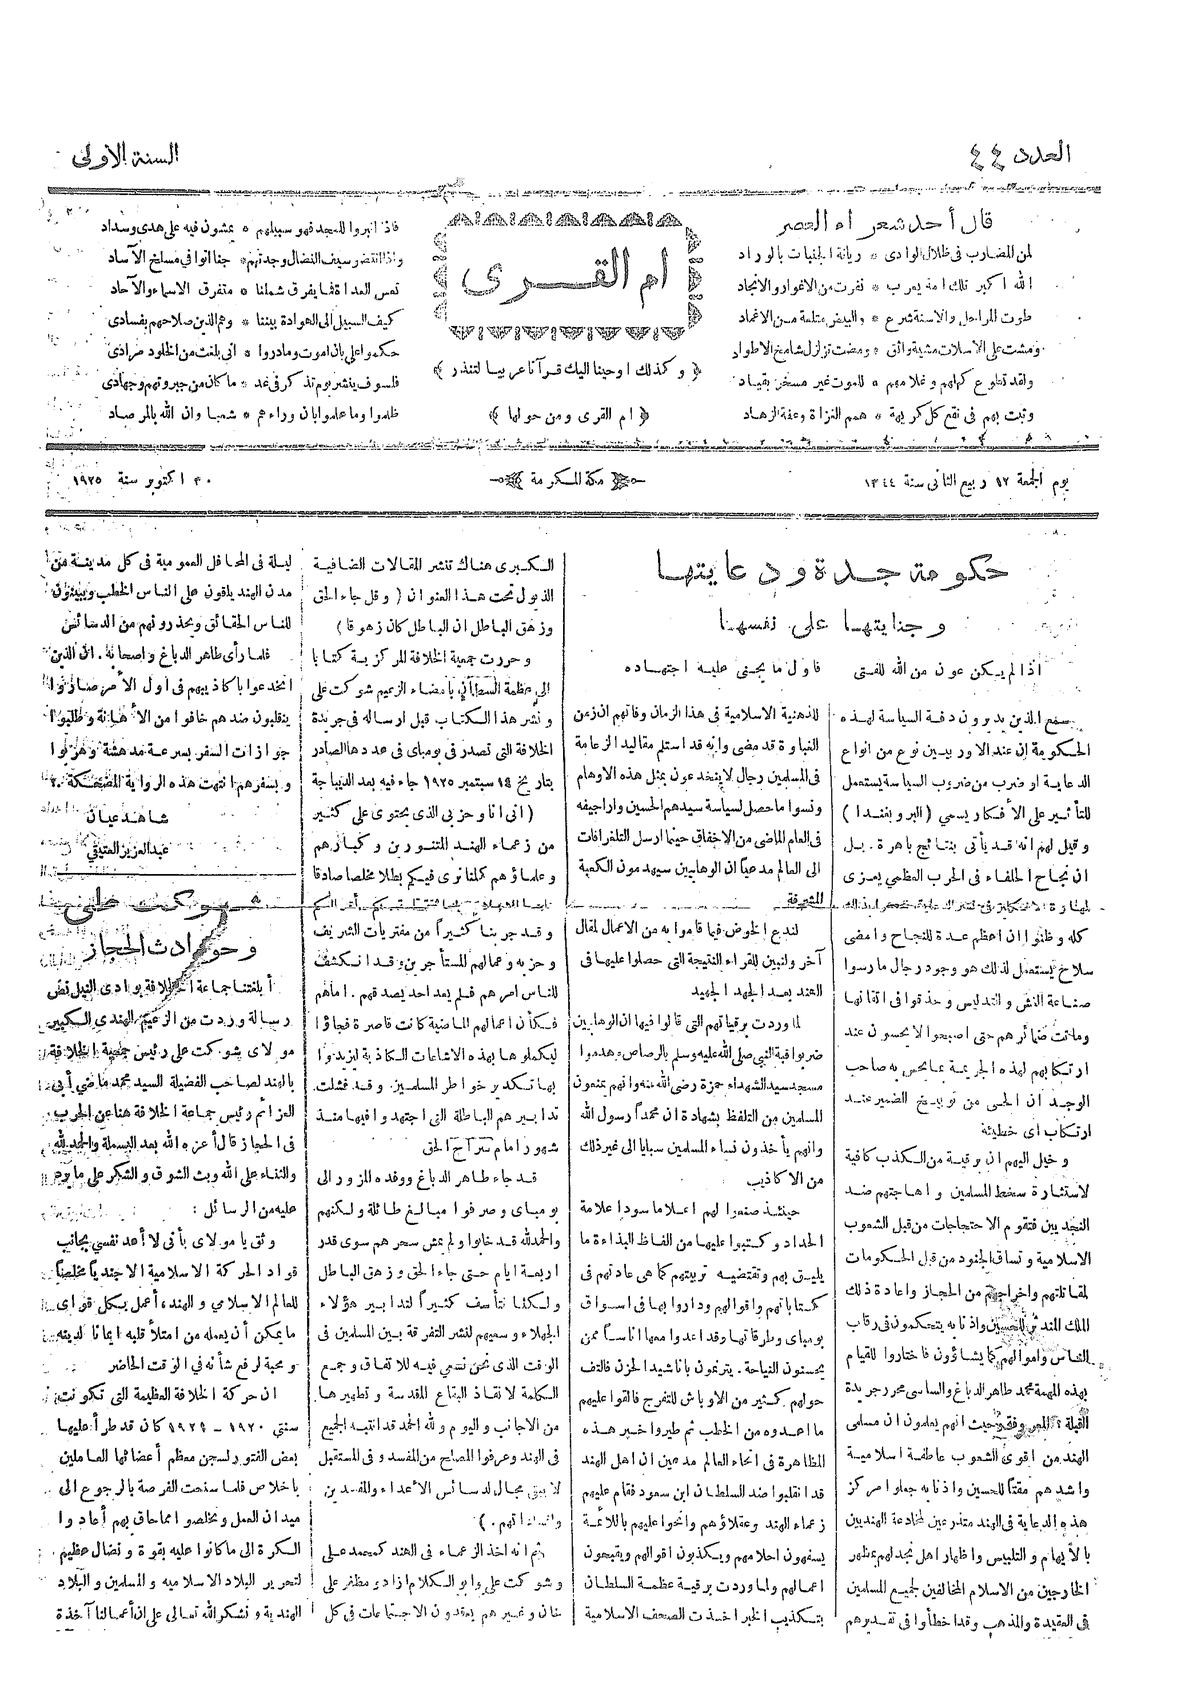 العدد ٤٤
السنة الاولى
قال أحد شعراء العصر
لمن المضارب فى ظلال الوادى * ريانة الجنبات بالوراد
الله اكبر تلك امة يعرب * نفرت من الاغوار والانجاد
طوت المراحل والاسنة شرع * والبيض متلعة من الاغماد
ومشت على الاسلات مشية واثق * ومضت تزلزل شامخ الاطواد
ولقد تطوع كهلهم وغلامهم * للموت غير مسخر بقياد
وثبت بهم فى نقع كل كريهة * همم الغزاة وعفة الزهاد
ام القرى
﴿ وكذلك اوحينا اليك قرآنا عربيا لتنذر ﴾
﴿ ام القرى ومن حولها ﴾
فاذا انبروا للمجد فهو سبيلهم * يمشون فيه على هدى وسداد
واذا انتضر سيف النضال وجدتهم * جنا اتوا فى مسلخ الآساد
تعس العداة فما يفرق شملنا * متفرق الاسماء والآحاد
كيف السبيل الى الهوادة بيننا * وهم الذين صلاحهم بفسادى
حكموا على بان اموت وما دروا * انى بلغت من الخلود مرادى
فلسوف ينشر يوم تذكر فى غد * ما كان من جبروتهم وجهادى
ظلموا وما علموا بان وراءهم * شعبا وان الله بالمرصاد
يوم الجمعة ١٢ ربيع الثانى سنة ١٣٤٤
مكة المكرمة
٣٠ اكتوبر سنة ١٩٢٥
حكومة جدة ودعايتها
وجنايتها على نفسها
اذا لم يكن عون من الله للفتى
فاول ما يجنى عليه اجتهاده
سمع الذين يديرون دفة السياسة لهذه
الحكومة إن عند الاوربيين نوع من انواع
الدعاية او ضرب من ضروب السياسة يستعمل
للتأثير على الأفكار يسمى (البروبغندا)
وقيل لهم انه قد يأتى بنتائج باهرة. بل
ان نجاح الحلفاء فى الحرب العظمى يعزى
كله وظنوا ان اعظم عدة للنجاح وامضى
سلاح يستعمل لذلك هو وجود رجال مارسوا
صناعة الغش والتدليس وحذقوا فى اتقانها
وماتت ضمائرهم حتى اصبحوا لا يحسون عند
ارتكابهم لهذه الجريمة بما يحس به صاحب
الوجدان الحى من توبيخ الضمير عند
ارتكاب اى خطيئة
وخيل اليهم ان برقية من الكذب كافية
لاستثارة سخط المسلمين واهاجتهم ضد
النجديين فتقوم الاحتجاجات من قبل الشعوب
الاسلامية وتساق الجنود من قبل الحكومات
لمقاتلتهم واخراجهم من الحجاز واعادة ذلك
الملك المندثر للحسين واذنابه يتحكمون فى رقاب
الناس واموالهم كما يشاؤون فاختاروا للقيام
بهذه المهمة محمد طاهر الدباغ والساسى محرر جريدة
القبلة المعروفة وحيث انهم يعلمون ان مسلمى
الهند من اقوى الشعوب عاطفة اسلامية
واشدهم مقتاً للحسين واذنابه جعلوا مركز
هذه الدعاية فى الهند متذرعين لمخادعة الهنديين
بالأيهام والتلبيس واظهار اهل نجد لهم بمظهر
الخارجين من الاسلام المخالفين لجميع المسلمين
فى العقيدة والمذهب وقد اخطأوا فى تقديرهم
للذهنية الاسلامية فى هذا الزمان وفاتهم ان زمن
الغباوة قد مضى وانه قد استلم مقاليد الزعامة
فى المسلمين رجال لا ينخدعون بمثل هذه الاوهام
ونسوا ما حصل لسياسة سيدهم الحسين واراجيفه
فى العام الماضى من الاخفاق حينما ارسل التلغرافات
الى العالم مدعياً ان الوهابيين سيهدمون الكعبة
المشرفة
لندع الخوض فيما قاموا به من الاعمال لمقال
آخر ولنبين للقراء النتيجة التى حصلوا عليها فى
الهند بعد الجهد الجهيد
لما وردت برقياتهم التى قالوا فيها ان الوهابيين
ضربوا قبة النبي صلى الله عليه وسلم بالرصاص وهدموا
مسجد سيد الشهداء حمزة رضى الله عنه وانهم يمنعون
المسلمين من التلفظ بشهادة ان محمداً رسول الله
وانهم يأخذون نساء المسلمين سبايا الى غير ذلك
من الاكاذيب
حينئذ صنعوا لهم اعلاما سودا علامة
الحداد وكتبوا عليها من الفاظ البذاءة ما
يليق بهم وتقتضيه تربيتهم كما هى عادتهم فى
كتاباتهم واقوالهم وداروا بها فى اسواق
بومباى وطرقاتها وقد اعدوا معها اناساً ممن
يحسنون النياحة. يترنمون باناشيد الحزن فالتف
حولهم كثير من الاوباش للتفرج فالقوا عليهم
ما اعدوه من الخطب ثم طيروا خبر هذه
المظاهرة فى انحاء العالم مدعين ان اهل الهند
قد انقلبوا ضد السلطان ابن سعود فقام عليهم
زعماء الهند وعقلاؤهم وانحوا عليهم باللائمة
يسفهون احلامهم ويكذبون اقوالهم ويقبحون
اعمالهم ولما وردت برقية عظمة السلطان
بتكذيب الخبر اخذت الصحف الاسلامية
الكبرى هناك تنشر المقالات الضافية
الذيول تحت هذا العنوان (وقل جاء الحق
وزهق الباطل ان الباطل كان زهوقا)
وحررت جمعية الخلافة المركزية كتابا
الى عظمة السلطان بامضاء الزعيم شوكت على
ونشر هذا الكتاب قبل ارساله فى جريدة
الخلافة التى تصدر فى بومباى فى عددها الصادر
بتاريخ ١٤ سبتمبر ١٩٢٥ جاء فيه بعد الديباجة
(انى انا وحزبى الذى يحتوى على كثير
من زعماء الهند المتنورين وكبارهم
وعلماؤهم كلنا نرى فيكم بطلا مخلصا صادقا
وقد جربنا كثيراً من مفتريات الشريف
وحزبه وعمالهم المستأجرين وقد انكشف
للناس امرهم فلم يعد احد يصدقهم. امامهم
فكأن اعمالهم الماضية كانت قاصرة فجاؤا
ليكملوها بهذه الاشاعات الكاذبة ليزيدوا
بها تكدير خواطر المسلمين. وقد فشلت
تدابيرهم الباطلة التى اجتهدوا فيها منذ
شهور امام سراج الحق
قد جاء طاهر الدباغ ووفده المزور الى
بومباى وصرفوا مبالغ طائلة ولكنهم
والحمد لله قد خابوا ولم يمش سحرهم سوى قدر
اربعة ايام حتى جاء الحق وزهق الباطل
ولكنا نتأسف كثيراً لتدابير هؤلاء
الجهلاء وسعيهم لنشر التفرقة بين المسلمين فى
الوقت الذى نحن نسعى فيه للاتفاق وجمع
الكلمة لانقاذ البقاع المقدسة وتطهيرها
من الاجانب واليوم ولله الحمد قد انتبه الجميع
فى الهند وعرفوا المصلح من المفسد وفى المستقبل
لا يبقى مجال لدسائس الأعداء والمفسدين
ثم انه اخذ الزعماء فى الهند كمحمد على
وشوكت على وابو الكلام ازاد ومظفر على
خان وغيرهم يعقدون الاجتماعات فى كل
ليلة فى المحافل العمومية فى كل مدينة من
مدن الهند يلقون على الناس الخطب ويبينون
للناس الحقائق ويحذرونهم من الدسائس
فلما رأى طاهر الدباغ واصحابه. ان الذين
انخدعوا باكاذيبهم فى اول الأمر صاروا
ينقلبون ضدهم خافوا من الأهانة وطلبوا
جوازات السفر بسرعة مدهشة وهربوا
وبسفرهم انتهت هذه الرواية المضحكة.
شاهد عيان
عبد العزيز العتيقي
شوكت على
وحوادث الحجاز
أبلغتنا جماعة الخلافة بوادى النيل نص
رسالة وردت من الزعيم الهندى الكبير
مولاى شوكت على رئيس جمعية الخلافة
بالهند لصاحب الفضيلة السيد محمد ماضى أبى
العزائم رئيس جماعة الخلافة هنا عن الحرب
فى الحجاز قال أعزه الله بعد البسملة والحمد لله
والثناء على الله وبث الشوق والشكر على ما يرد
عليه من الرسائل:
وثق يا مولاى بأنى لا أعد نفسي بجانب
قواد الحركة الاسلامية الا جندياً مخلصاً
للعالم الاسلامي والهند، أعمل بكل قواى
ما يمكن أن يعمله من امتلأ قلبه ايمانا لدينه
ومحبة لرفع شأنه فى الوقت الحاضر
ان حركة الخلافة العظيمة التى تكونت
سنتي ١٩٢٠ – ١٩٢٤ كان قد طرأ عليها
بعض الفتور لسجن معظم أعضائها العاملين
باخلاص فلما سنحت الفرصة بالرجوع الى
ميدان العمل وتخلصوا مما حاق بهم أعادوا
الكرة الى ما كانوا عليه بقوة ونضال عظيم
لتحرير البلاد الاسلاميه والمسلمين والبلاد
الهندية ونشكر الله تعالى على ان أعمالنا آخذة